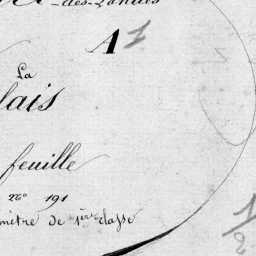 -des-Landes
A 1
La
lais
feuille
n° 191
mètre de 1ère classe
1/2